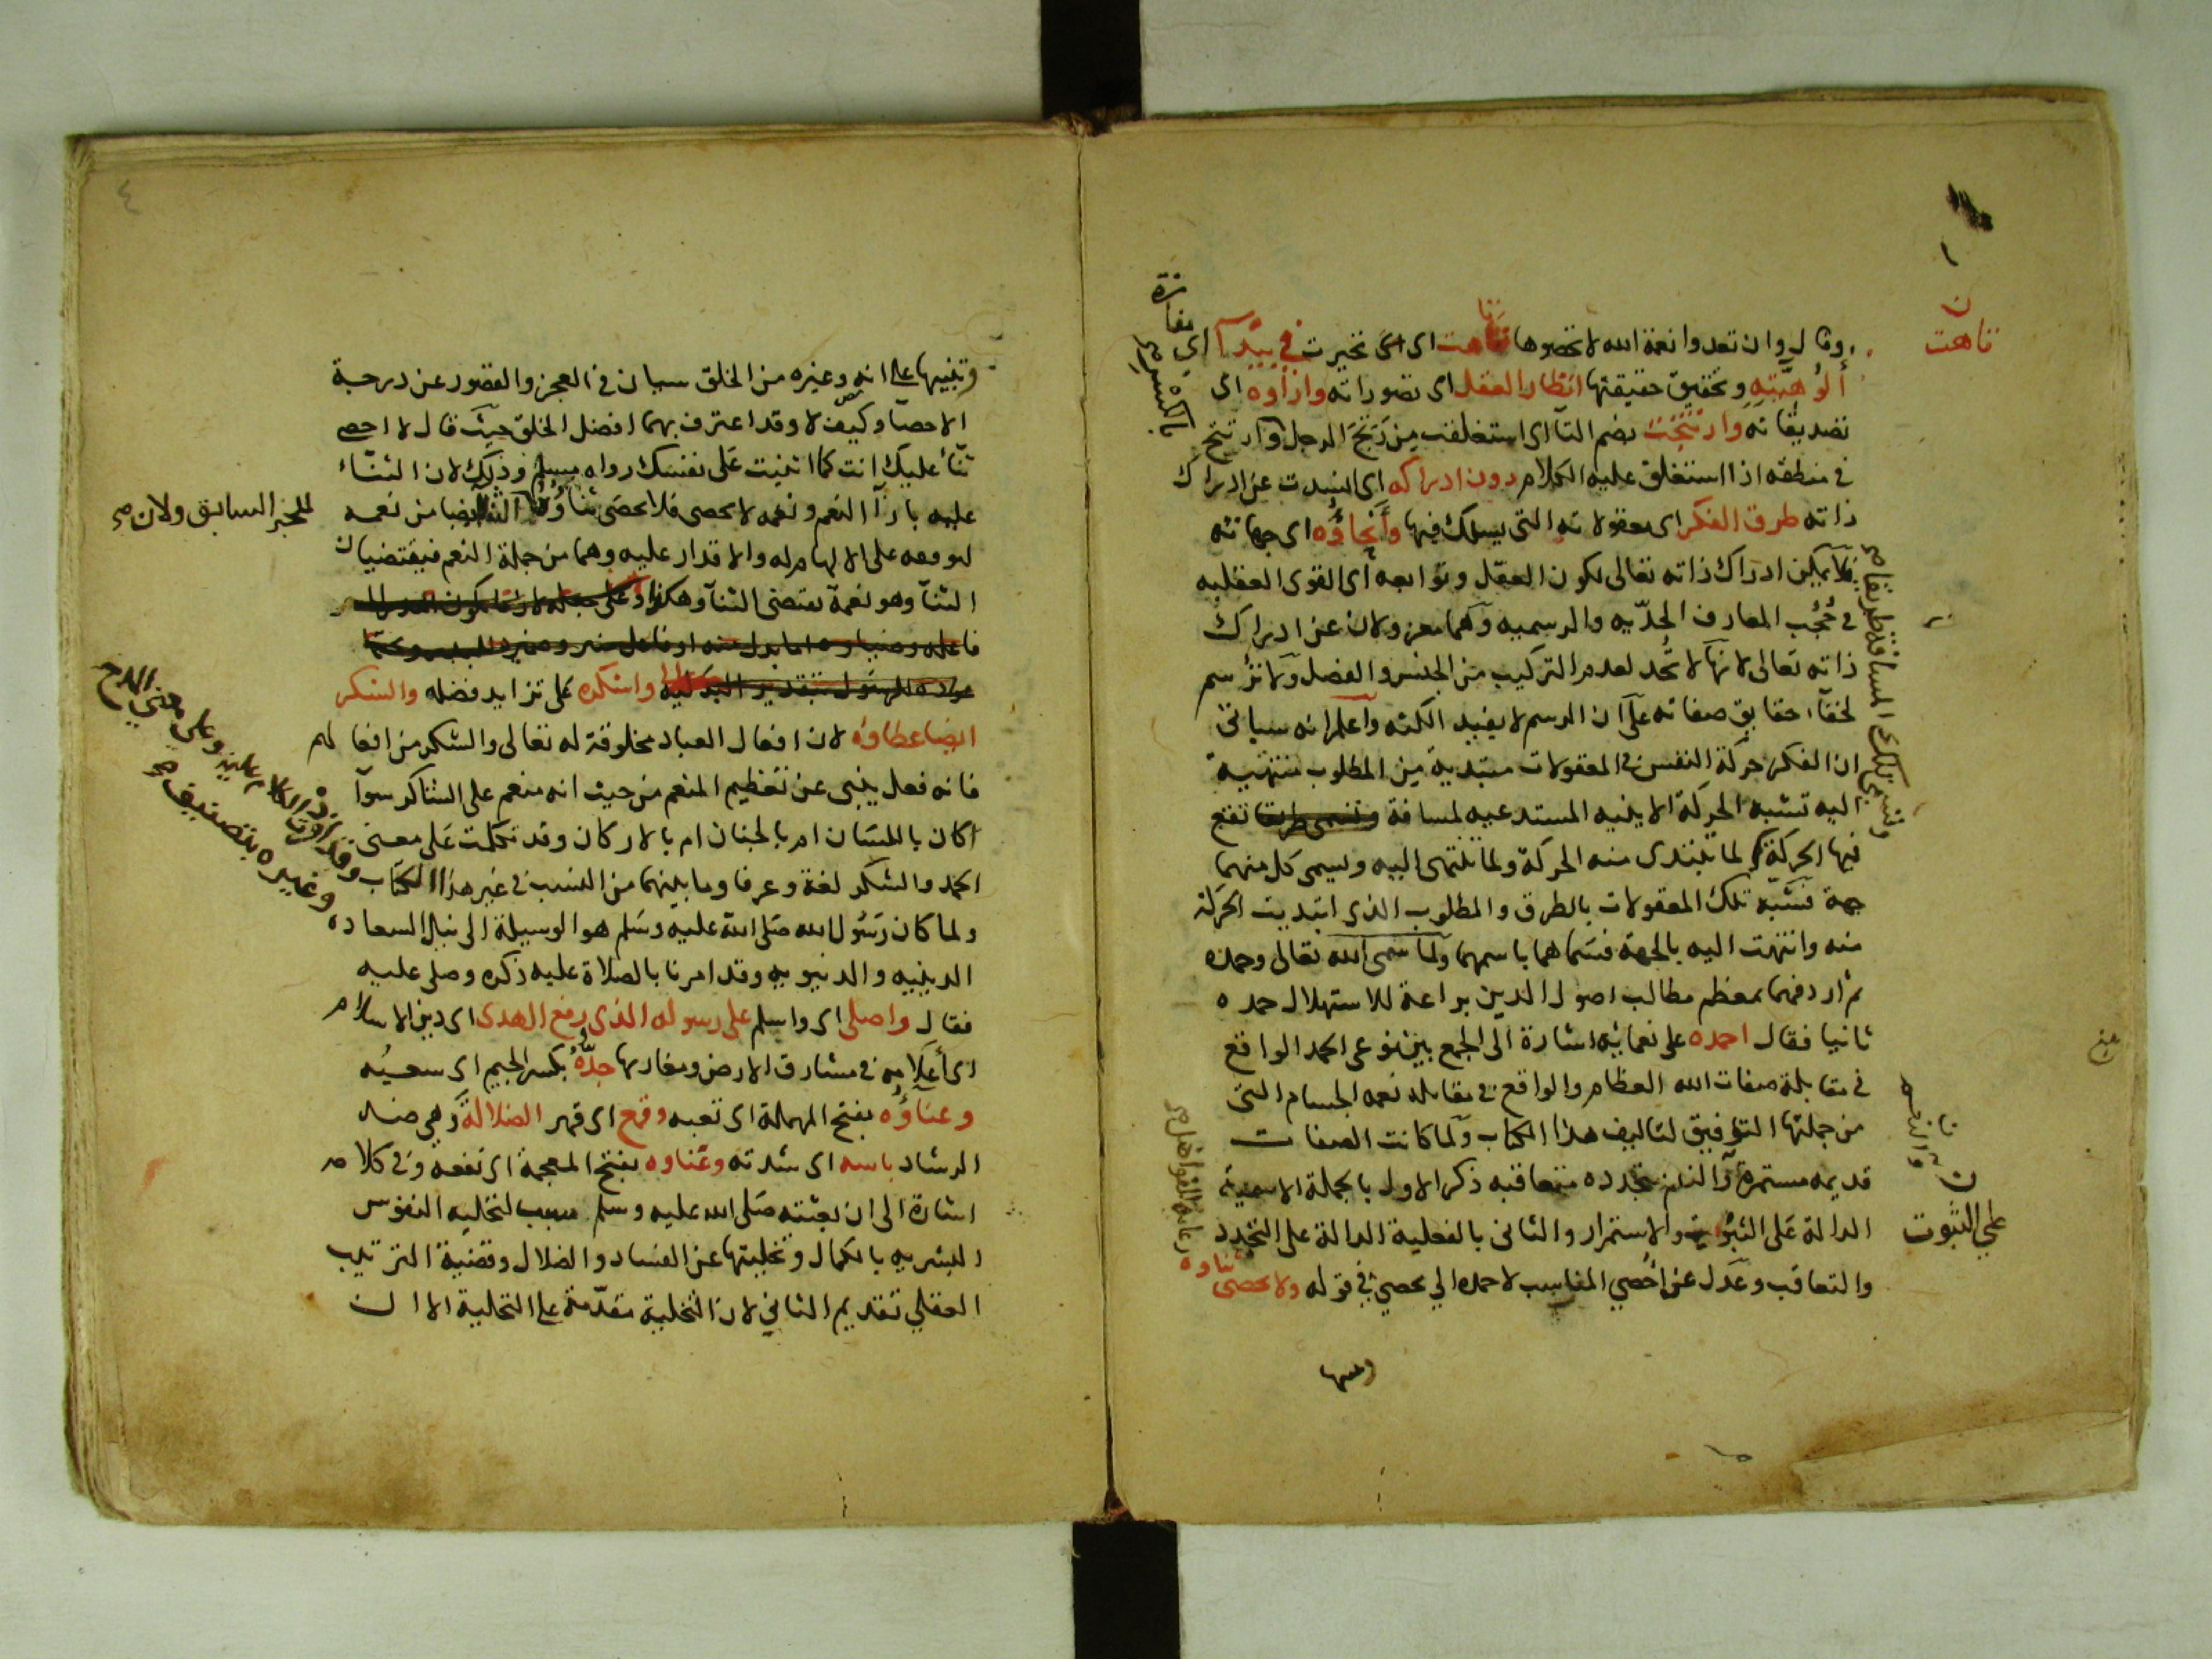 وقال وان تعدوا نعمة الله لا تحصوها تاهت اى تحيرت فى بيدآ اى
ألُوهيّته وتحقيق حقيقتها انظار العقل اى تصوراته وارآوه اى
تصديقاته وارتتجت بضم التآ اى استغلقت من رَتَجَ الرجل وارتتج
فى منطقه اذا استغلق عليه الكلام دون ادراكه اى انسدت عن ادراك
ذاته طرق الفكر اى معقولاته التى يسلك فيها وأنحاؤه اى جهاته
فلا يمكن ادراك ذاته تعالى لكون العقل وتوابعه اى القوى العقليه
فى حُجُب المعارف الحدّيه والرسميه وهما معزولان عن ادراك
ذاته تعالى لانها لا تُحد لعدم التركيب من الجنس والفصل ولا تُرسم
لخفآء حقايق صفاته على ان الرسم لا يفيد الكنه واعلم انه سياتى
ان الفكر حركة النفس فى المعقولات مبتدية من المطلوب منتهية
اليه تشبه الحركة الاينيه المستدعيه لمسافة تقع
فيها الحركة لما تبتدى منه الحركة ولما تنتهى اليه ويسمى كل منهما
جهة فشبّه تلك المعقولات بالطرق والمطلوب الذى ابتديت الحركة
منه وانتهت اليه بالجهة فسماهما باسمهما ولما سمى الله تعالى وحمده
ثم اردفهما بمعظم مطالب اصول الدين براعة للاستهلال حمده
ثانيا فقال احمده على نعمائه اشارة الى الجمع بين نوعى الحمد الواقع
فى مقابلة صفات الله العظام والواقع فى مقابلة نعمه الجسام التى
من جملتها التوفيق لتاليف هذا الكتاب ولما كانت الصفات
قديمه مستمرة والنعم متجدده متعاقبه ذكر الاول بالجملة الاسميه
الدالة على الثبوت والاستمرار والثانى بالفعلية الدالة على التجدد
والتعاقب وعدل عن احصي المناسب لاحمد الي يحصي فى قوله ولا يحصى ثناوه
تاهت
ن
مفازة
ن
على الثبوت
وتنبيها على انه وغيره من الخلق سيان فى العجز والقصور عن درجة
الاحصآ وكيف لا وقد اعترف بهما افضل الخلق حيث قال لا احصى
ثنآء عليك انت كما اثنيت على نفسك رواه مسلم وذلك لان الثنآء
عليه بازآ النعم ونعمه لا تحصى فلا يحصى ثناؤه ايضا من نعمه
للخبر السابق ولان
على الالهام له والاقدار عليه وهما من جملة النعم فيقتضيان
الثنآ وهو نعمة يقتضى الثنآ وهكذا
واشكره على تزايد فضله والشكر
ايضا عطاؤه لان افعال العباد مخلوقة له تعالى والشكر من افعالهم
فانه فعل ينبى عن تعظيم المنعم من حيث انه منعم على الشاكر سوآ
اكان باللسان ام بالجنان ام بالاركان وقد تكلمت على معنى
الحمد والشكر لغة وعرفا وما بينهما من النسب فى غير هذا الكتاب
ولما كان رسُول الله صلى الله عليه وسلم هو الوسيلة الى نيل السعاده
الدينيه والدنيويه وقد امرنا بالصلاة عليه ذكره وصلى عليه
فقال واصلى اى واسلم على رسوله الذى رفع الهدى اى دين الاسلام
اى أعلامه فى مشارق الارض ومغاربها جِدّهُ بكسر الجيم اى سعيُه
وعناؤه بفتح المهملة اى تعبه وقمع اى قهر الضلالة وهى ضد
الرشاد باسه اى شدته وغناوه بفتح المعجمة اى نفعه وفى كلامه
اشارة الى ان بعثته صلى الله عليه وسلم سبب لتحليه النفوس
البشريه بالكمال وتخليتها عن الفساد والضلال وقضية الترتيب
العقلي تقديم الثاني لان التخلية مقدّمة على التحلية الا ان